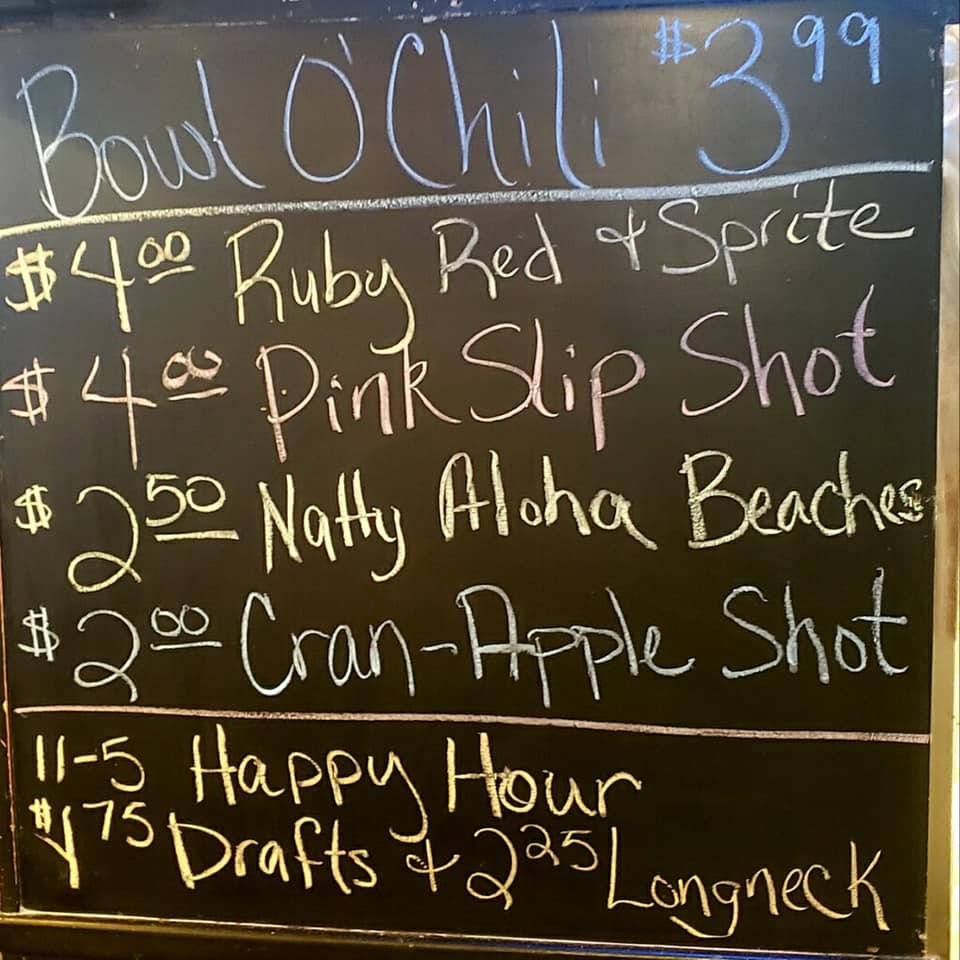 Bowl O'Chili $3.99
$4.00 Ruby Red & Sprite
$4.00 Pink Slip Shot
$2.50 Natty Aloha Beaches
$2.00 Cran-Apple Shot
11-5 Happy Hour
$1.75 Drafts & 2.25 Longneck